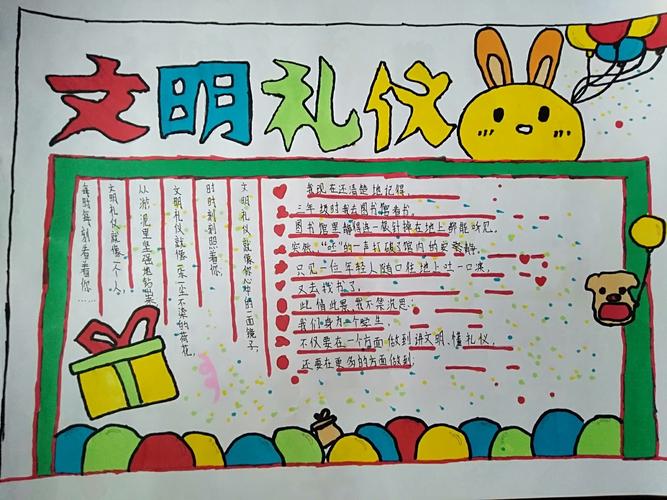 文明礼仪
文明礼仪就像你心中的一面镜子,
时时刻刻照着你.
文明礼仪就像一朵一尘不染的荷花,
从淤泥里坚强地钻出来
文明礼仪就像一个人,
每时每刻看着你……
我现在还清楚地记得,
三年级时我去图书馆看书.
图书馆里静得连一根针掉在地上都能听见.
突然,"呸"的一声打破了馆内的安静,
只见一位年轻人随口往地上吐一口痰,
又去找书了.
此情此景,我不禁沉思:
我们身为一个学生,
不仅要在一个方面做到讲文明、懂礼仪,
还要在更多的方面做到.